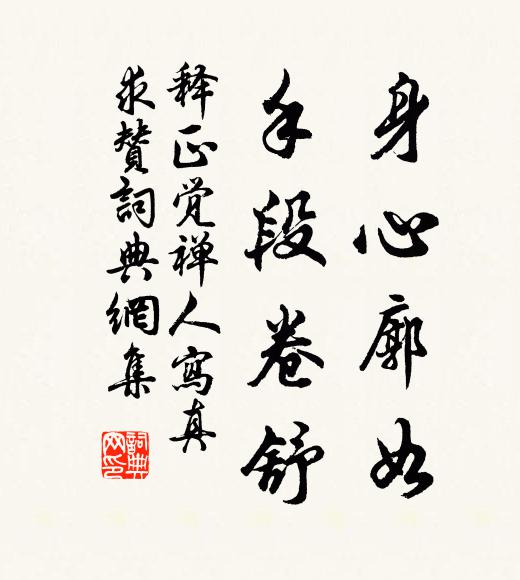 身心廓如
手段卷舒
释正觉禅人寫真
求赞詞典網集
詞典
网印